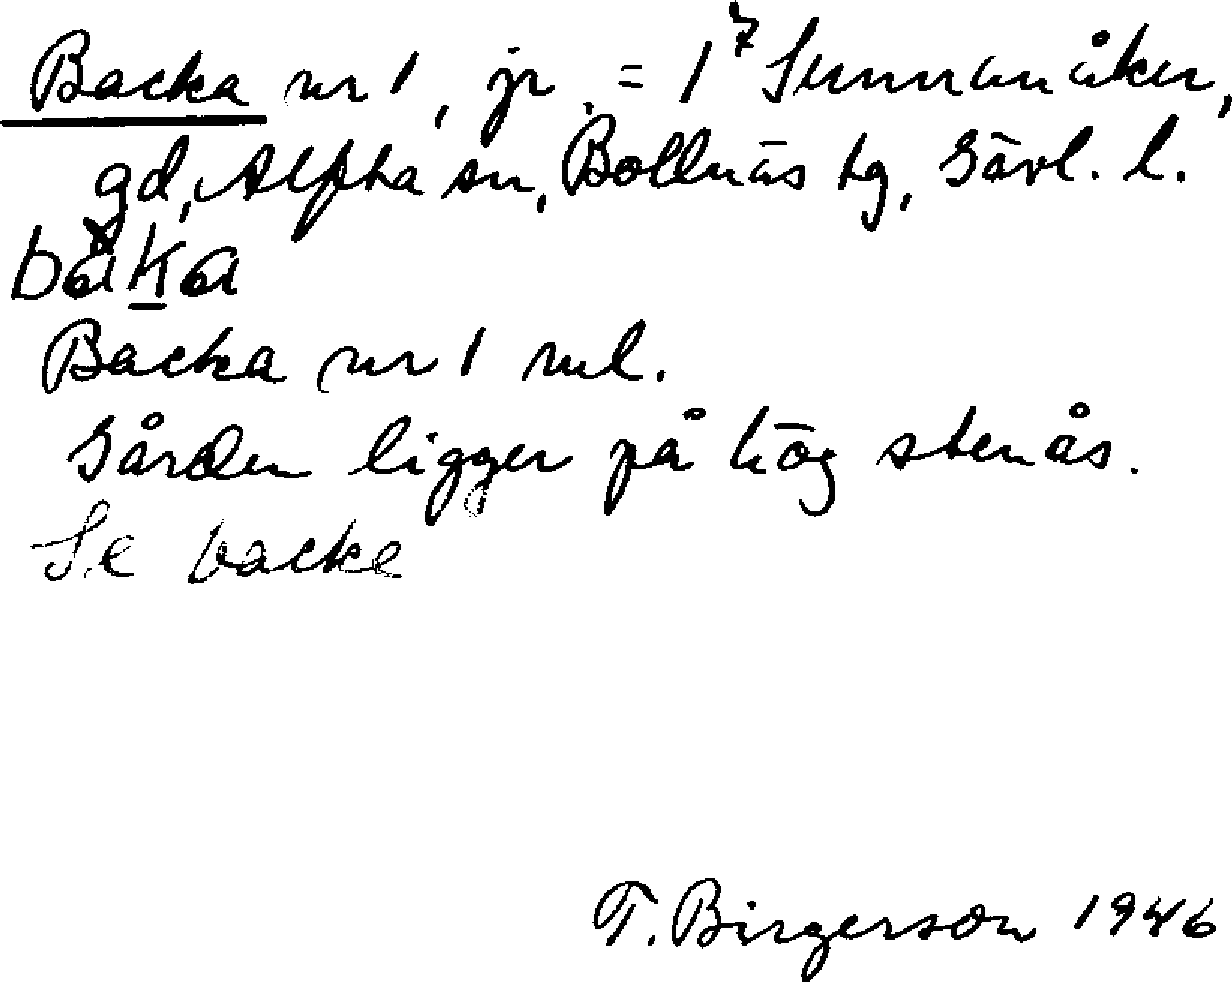 Backa nr 1, jr. = 1⁷ Sunnanåker,
gd, Alfta sn, Bollnäs tg, Gävl. l.
båka
Backa nr 1 ml.
Gården ligger på hög stenås.
Se backe
T. Birgerson 1946